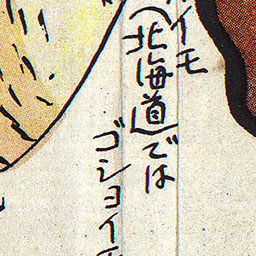 イモ
(北海道では
ゴショイモ